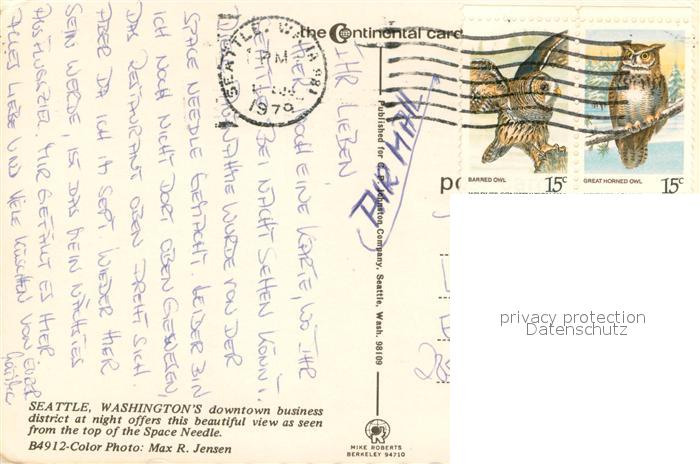 the Continental card
SEATTLE, WA 981
PM
1979
BARRED OWL
15c
GREAT HORNED OWL
15c
AIR MAIL
Published for C. P. Johnston Company, Seattle, Wash. 98109
IHR LIEBEN
HIER NOCH EINE KARTE, WO IHR
SEATTLE BEI NACHT SEHEN KÖNNT.
DIESE AUFNAHME WURDE VON DER
SPACE NEEDLE GEMACHT. LEIDER BIN
ICH NOCH NICHT DORT OBEN GEWESEN,
DAS RESTAURANT OBEN DREHT SICH.
ABER DA ICH IM SEPT. WIEDER HIER
SEIN WERDE, IST DAS MEIN NÄCHSTES
AUSFLUGZIEL. MIR GEFÄLLT ES HIER.
ALLES LIEBE UND VIELE KÜSSCHEN VON EURER
privacy protection
Datenschutz
SEATTLE, WASHINGTON'S downtown business
district at night offers this beautiful view as seen
from the top of the Space Needle.
B4912-Color Photo: Max R. Jensen
MIKE ROBERTS
BERKELEY 94710